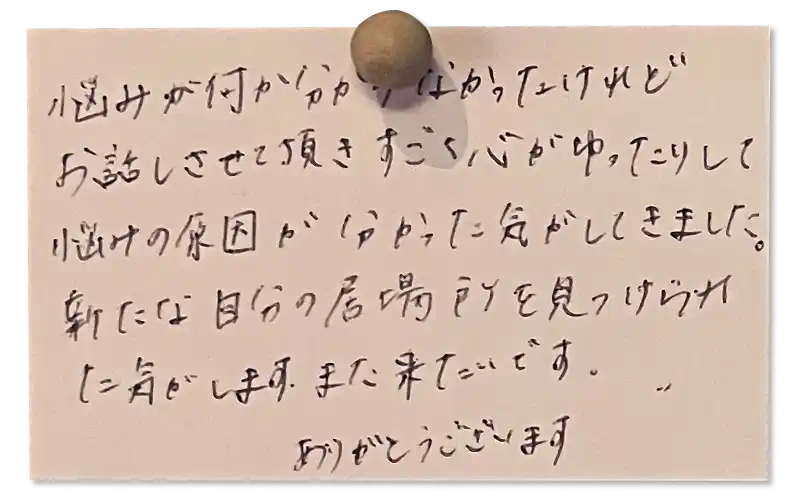 悩みが何か分からなかったけれど
お話しさせて頂きすごく心がゆったりして
悩みの原因が分かった気がしてきました。
新たな自分の居場所を見つけられ
た気がします。また来たいです。
ありがとうございます